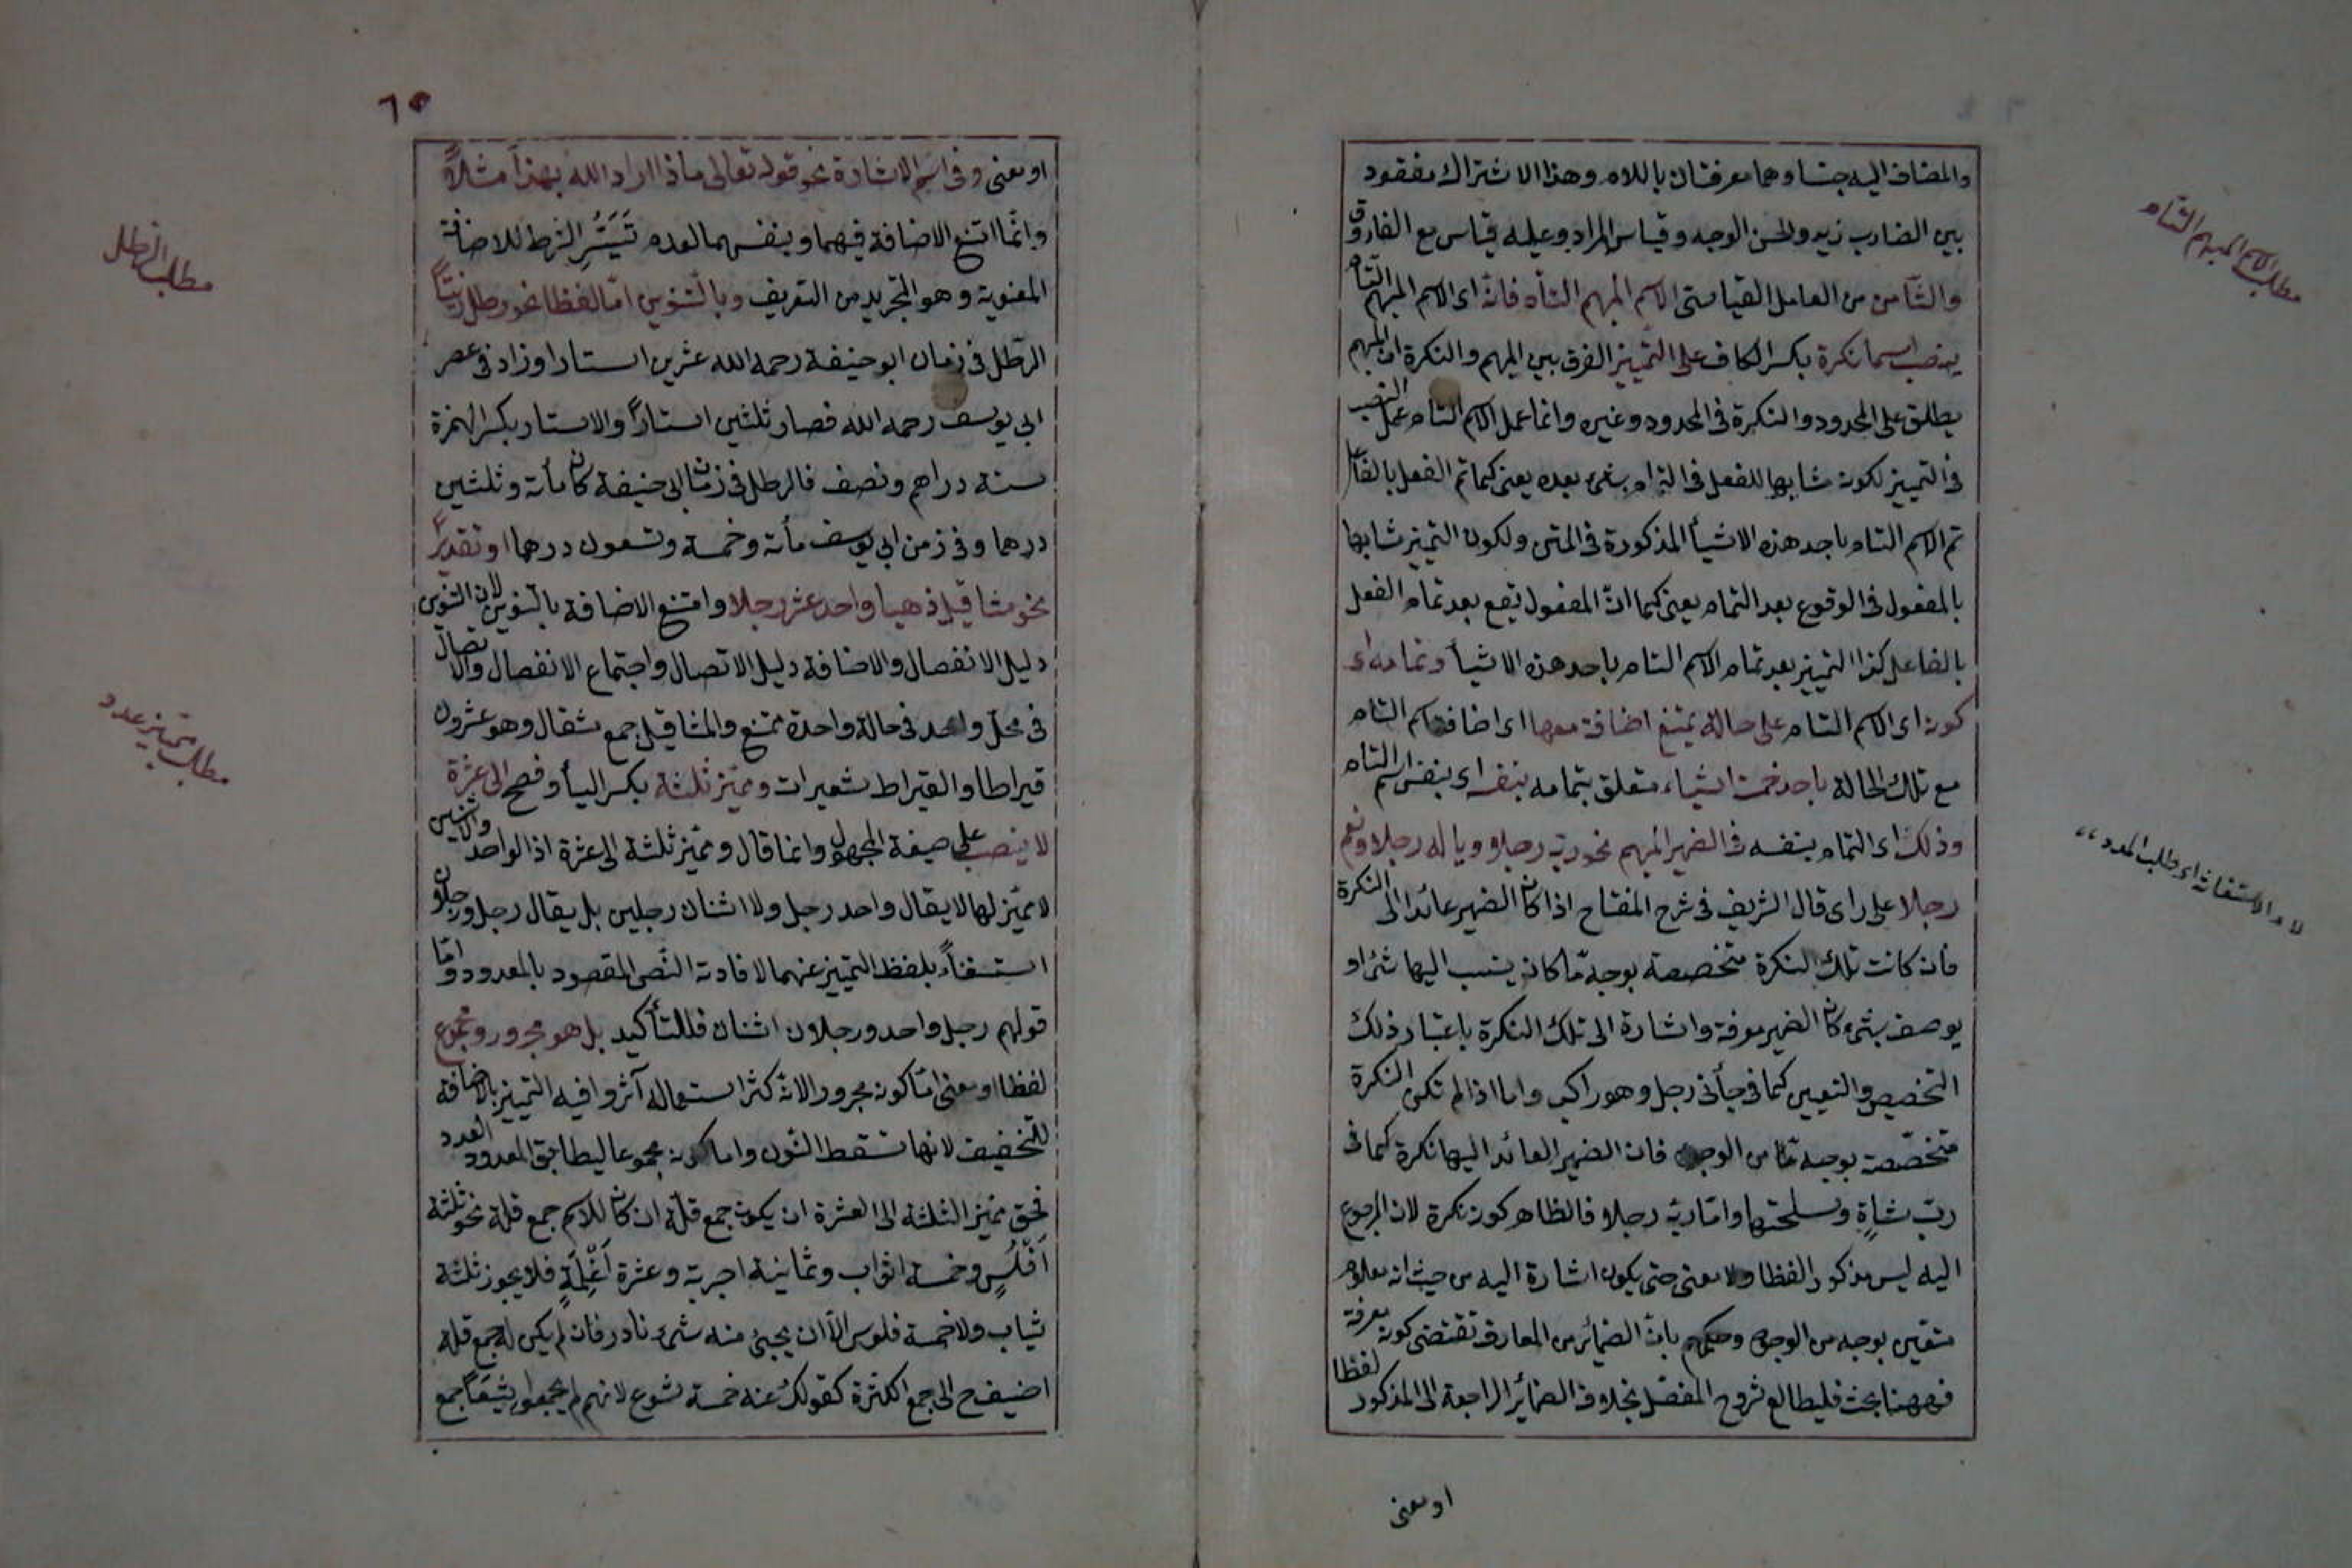 والمضاف اليه جنسا وهما معرفتان باللام وهذا الاشتراك مفقود
بين الضارب زيد والحسن الوجه وقياس المراد وعليه قياس مع الفارق
والثامن من العامل القياسى الاسم المبهم التام فانه اى الاسم المبهم التام
ينصب اسما نكرة بكسر الكاف على التمييز الفرق بين المبهم والنكرة ان المبهم
يطلق على المحدود والنكرة فى المحدود وغيره وانما عمل الاسم التام عمل النصب
فى التمييز لكونه مشابها للفعل فى التمام بشئ بعده يعنى كما تم الفعل بالفاعل
تم الاسم التام باحد هذه الاشيأ المذكورة فى المتن ولكون التمييز مشابها
بالمفعول فى الوقوع بعد التمام يعنى كما انّ المفعول يقع بعد تمام الفعل
بالفاعل كذا التمييز بعد تمام الاسم التام باحد هذه الاشيأ وتمامه اى
كونه اى الاسم التام على حالة يمتنع اضافته معها اى اضافة اسم التام
مع تلك الحالة باحد خمسة اشياء متعلق بتمامه بنفسه اى بنفس اسم التام
وذلك اى التمام بنفسه فى الضمير المبهم نحو ربه رجلا ويا له رجلا ونعم
رجلا على راى قال الشريف فى شرح المفتاح اذا كان الضمير عائدا الى النكرة
فان كانت تلك النكرة متخصصة بوجه ما كان ينسب اليها شئ او
يوصف بشئ كان الضمير معرفة واشارة الى تلك النكرة باعتبار ذلك
التخصيص والتعيين كما فى جأنى رجل وهو راكب واما اذا لم تكن النكرة
متخصّصة بوجه ما من الوجوه فان الضمير العائد اليها نكرة كما فى
ربّ شاةٍ وسلختها وامّا ربّه رجلا فالظاهر كونه نكرة لان المرجوع
اليه ليس مذكور الفظا ولا معنى حتى يكون اشارة اليه من حيث انه معلوم
متعين بوجه من الوجوه وحكمهم بانّ الضمائر من المعارف تقتضى كونه معرفة
فههنا بحث فليطالع شروح المفصّل بخلاف الضمائر الراجعة الى المذكور لفظا
او معنى
مطلب الاسم المبهم التام
لام الاستغاثة اى طلب المدد
٦٥
او معنى وفى اسم الاشارة نحو قوله تعالى ماذا اراد الله بهذا مثلاً
وانّما امتنع الاضافة فيهما وبنفسهما لعدم تَيَسُّرِ الشرط للاضافة
المعنوية وهو التجريد من التعريف وبالتنوين امّا لفظا نحو رطل زيتاً
الرّطل فى زمان ابو حنيفة رحمه الله عشرين استارا وزاد فى عصر
ابى يوسف رحمه الله فصار ثلثين استاراً والاستار بكسر الهمزة
ستة دراهم ونصف فالرطل فى زمان ابى حنيفة كان مأته وثلثين
درهما وفى زمن ابى يوسف مأته وخمسة وتسعون درهما او تقديرًا
نحو مثاقيل ذهبا واحد عشر رجلا وامتنع الاضافة بالتنوين لان التنوين
دليل الانفصال والاضافة دليل الاتصال واجتماع الانفصال والاتصال
فى محلّ واحد فى حالة واحدة ممتنع والمثاقيل جمع مثقال وهو عشرون
قيراطا والقيراط شعيرات ومميّز ثلثة بكسر اليأ وفتح الى عشرة
لا ينصب على صيغة المجهول وانما قال ومميّز ثلثة الى عشرة اذ الواحد والاثنين
لا مميّز لها لا يقال واحد رجل ولا اثنان رجلين بل يقال رجل ورجلان
استغناءً بلفظ التمييز عنهما لافادته النّص المقصود بالمعدود وامّا
قولهم رجل واحد ورجلان اثنان فللتأكيد بل هو مجرور ومجموع
لفظا او معنى امّا كونه مجرور الانّه كثر استعماله آثروا فيه التمييز بالاضافة
للتخفيف لانها تسقط النّون واما كونه مجموعا ليطابق المعدود العدد
فحق مميّز الثلثة الى العشرة ان يكون جمع قلّة ان كان للاسم جمع قلة نحو ثلثة
اَفْلُسٍ وخمسة اثواب وثمانية اجربة وعشرة اَغْلِمَةٍ فلا يجوز ثلثة
ثياب ولا خمسة فلوس الّا ان يجئ منه شئ نادر فان لم يكن له جمع قلة
اضيف ح الى جمع الكثرة كقولك عنه خمسة شسوع لانهم لم يجمعوا شِسْعًا جمع
مطلب الرطل
مطلب تمييز عدد